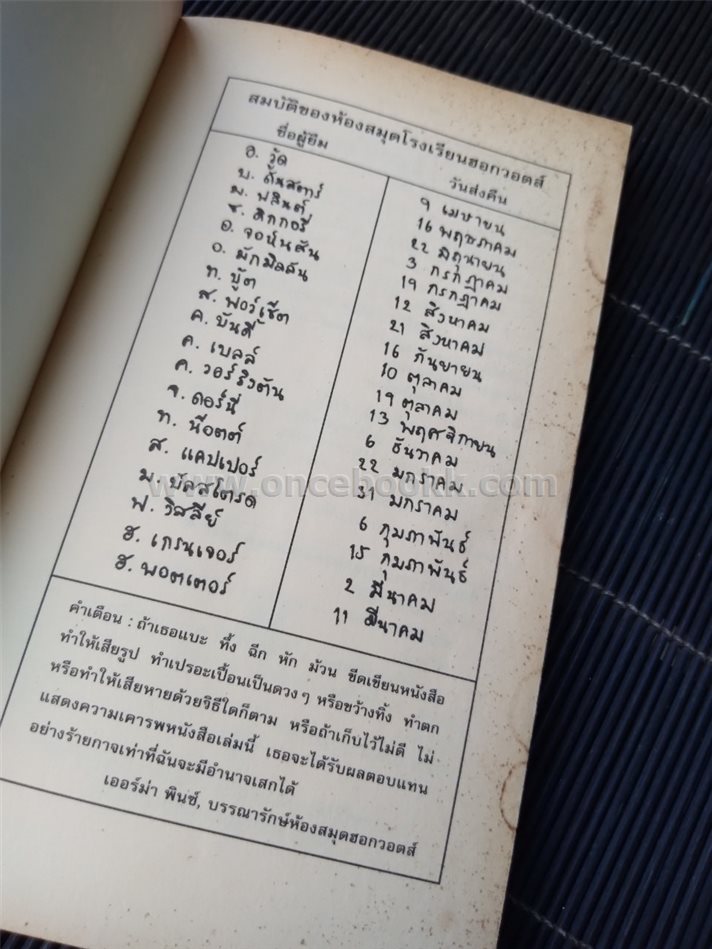 สมบัติของห้องสมุดโรงเรียนฮอกวอตส์
ชื่อผู้ยืม วันส่งคืน
อ. วู้ด 9 เมษายน
บ. ดันสตาร์ 16 พฤษภาคม
ม. ฟลินต์ 22 มิถุนายน
ซ. ดิกกอรี่ 3 กรกฎาคม
อ. จอห์นสัน 19 กรกฎาคม
อ. มักมิลลัน 12 สิงหาคม
ท. บู้ต 21 สิงหาคม
ส. ฟอว์เซ็ต 16 กันยายน
ค. บันดี้ 10 ตุลาคม
ค. เบลล์ 19 ตุลาคม
ค. วอร์ริงตัน 13 พฤศจิกายน
จ. ดอร์นี่ 6 ธันวาคม
ท. น็อตต์ 22 มกราคม
ส. แคปเปอร์ 31 มกราคม
ม. บัลสโตรด 6 กุมภาพันธ์
ฟ. วีสลีย์ 15 กุมภาพันธ์
ฮ. เกรนเจอร์ 2 มีนาคม
ฮ. พอตเตอร์ 11 มีนาคม
www.oncebookk.com
คำเตือน : ถ้าเธอแบะ ทึ้ง ฉีก หัก ม้วน ขีดเขียนหนังสือ
ทำให้เสียรูป ทำเปรอะเปื้อนเป็นดวงๆ หรือขว้างทิ้ง ทำตก
หรือทำให้เสียหายด้วยวิธีใดก็ตาม หรือถ้าเก็บไว้ไม่ดี ไม่
แสดงความเคารพหนังสือเล่มนี้ เธอจะได้รับผลตอบแทน
อย่างร้ายกาจเท่าที่ฉันจะมีอำนาจเสกได้
เออร์ม่า พินซ์, บรรณารักษ์ห้องสมุดฮอกวอตส์